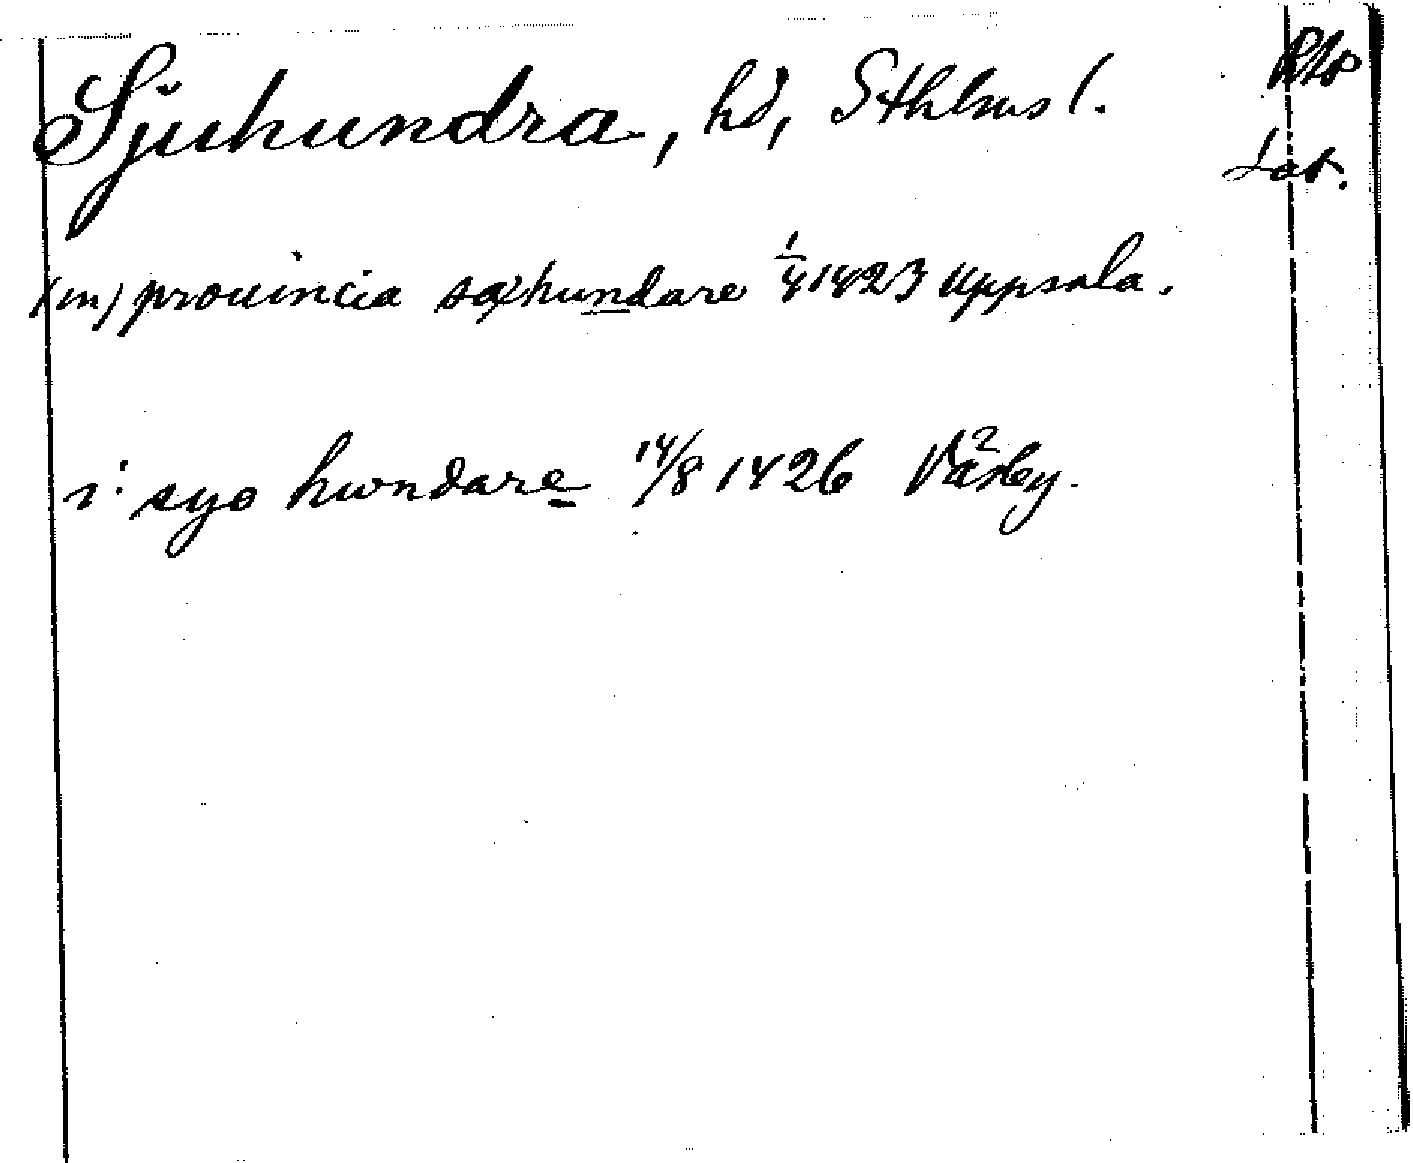 Sjuhundra, hd, Sthlms l.
RAp
Lat.
(in) prouincia søhundare 1/4 1423 Uppsala.
i syo hwndare 14/8 1426 Väsby.